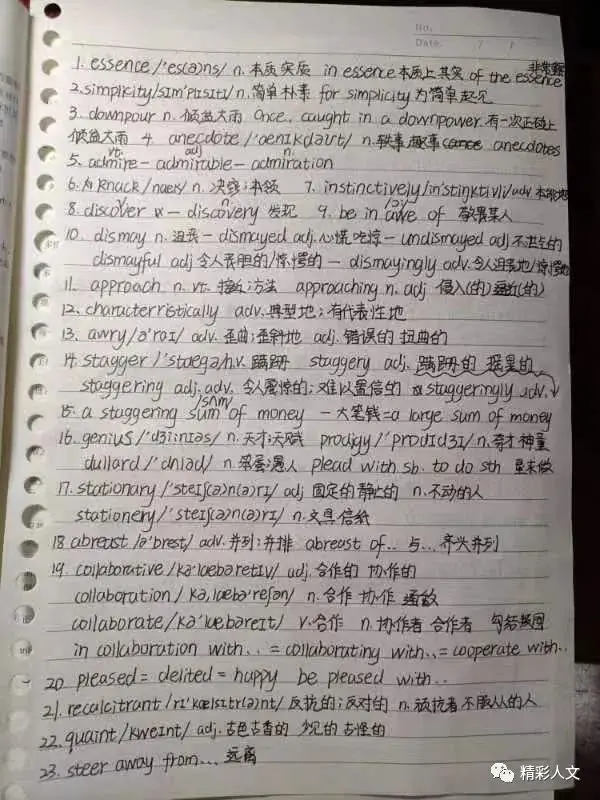 No.
Date. / /
非常重要
1. essence /'es(ə)ns/ n. 本质 实质 in essence 本质上 其实 of the essence
2. simplicity /sɪm'plɪsɪtɪ/ n. 简单 朴素 for simplicity 为简单起见
3. downpour n. 倾盆大雨 Once, caught in a downpower. 有一次正碰上
倾盆大雨 4. anecdote /'ænɪkdəʊt/ n. 轶事 趣事 anecdotes
vt. adj n.
5. admire - admirable - admiration
6. knack /næk/ n. 诀窍;本领 7. instinctively /in'stiŋktivli/ adv 本能地
v. n. /ɔ:/
8. discover - discovery 发现 9. be in awe of 敬畏某人
10. dismay n. 沮丧 - dismayed adj. 心慌 吃惊 - undismayed adj 不沮丧的
dismayful adj 令人丧胆的/惊愕的 - dismayingly adv. 令人沮丧地/惊愕地
11. approach n. vt. 接近;方法 approaching n. adj 侵入(的) 逼近(的)
12. characterristically adv. 典型地;有代表性地
13. awry /ə'raɪ/ adv. 歪曲;歪斜地 adj. 错误的 扭曲的
14. stagger /'stægə/ n.v. 蹒跚 staggery adj. 蹒跚的 摇晃的
staggering adj. adv. 令人震惊的;难以置信的 staggeringly adv.
/sʌm/
15. a staggering sum of money 一大笔钱 = a large sum of money
16. genius /'dʒi:nɪəs/ n. 天才;天赋 prodigy /'prɒdɪdʒɪ/ n. 奇才 神童
dullard /'dʌləd/ n. 笨蛋;愚人 plead with sb. to do sth 恳求做
17. stationary /'steɪʃ(ə)n(ə)rɪ/ adj 固定的 静止的 n. 不动的人
stationery /'steɪʃ(ə)n(ə)rɪ/ n. 文具 信纸
18 abreast /ə'brest/ adv. 并列;并排 abreast of .. 与... 齐头并列
19. collaborative /kə'læbəretɪv/ adj. 合作的 协作的
collaboration /kə,læbə'reʃən/ n. 合作 协作 通敌
collaborate /kə'læbəreɪt/ v. 合作 n. 协作者 合作者 勾结
in collaboration with .. = collaborating with .. = cooperate with ..
20 pleased = delited = happy be pleased with ..
21. recalcitrant /rɪ'kælsɪtr(ə)nt/ 反抗的;反对的 n. 顽抗者 不服从的人
22. quaint /kweɪnt/ adj. 古色古香的 少见的 古怪的
23. steer away from ... 远离
精彩人文